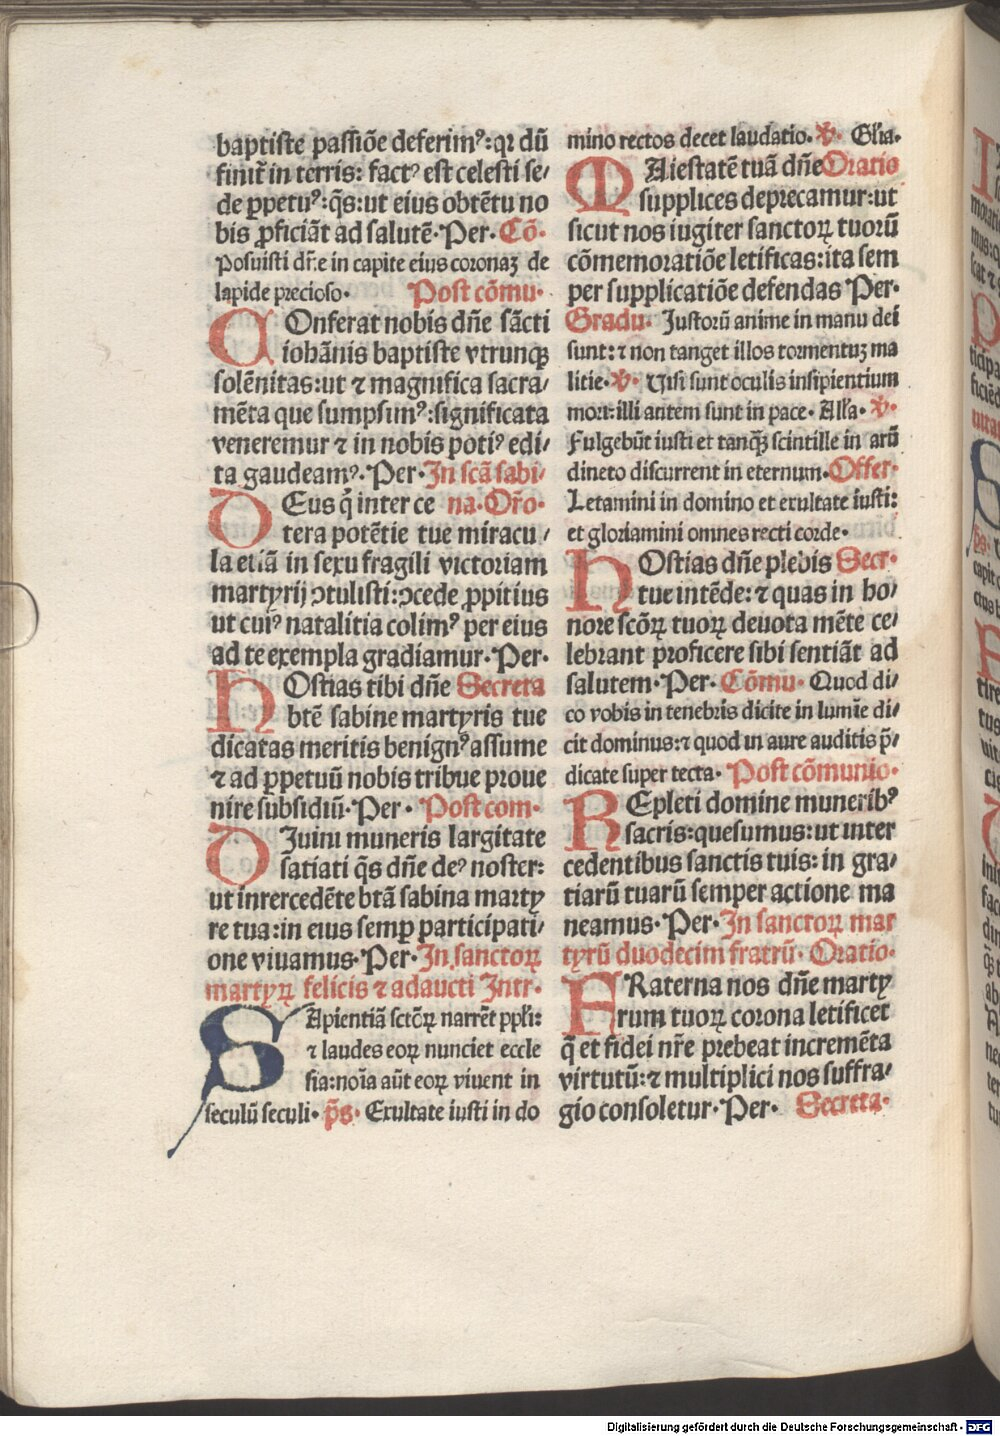 baptiste passiõe deferimꝰ: qꝛ dũ
finit̃ in terris: factꝰ est celesti se⸗
de ꝑpetuꝰ: q̃s: ut eius obtẽtu no
bis ꝓficiãt ad salutẽ. Per. Cõ.
Posuisti dñe in capite eius coronaʒ de
lapide precioso. Post cõmu.
COnferat nobis dñe sãcti
iohãnis baptiste vtrunqꝫ
solẽnitas: ut ⁊ magnifica sacra⸗
mẽta que sumpsimꝰ: significata
veneremur ⁊ in nobis potiꝰ edi⸗
ta gaudeamꝰ. Per. In scã sabi⸗
DEus q̃ inter ce na. Oro.
tera potẽtie tue miracu⸗
la etiã in sexu fragili victoriam
martyrij ɔtulisti: ɔcede ꝓpitius
ut cuiꝰ natalitia colimꝰ per eius
ad te exempla gradiamur. Per.
HOstias tibi dñe Secreta
btẽ sabine martyris tue
dicatas meritis benignꝰ assume
⁊ ad ꝑpetuũ nobis tribue proue
nire subsidiũ. Per. Post com.
DIuini muneris largitate
satiati q̃s dñe deꝰ noster:
ut inrercedẽte btã sabina marty
re tua: in eius semꝑ participati⸗
one viuamus. Per. In sanctoꝝ
martyꝝ felicis ⁊ adaucti Intr.
SApientiã sctõꝝ narrẽt ppl̃i:
⁊ laudes eoꝝ nunciet eccle
sia: noĩa aũt eoꝝ viuent in
seculũ seculi. p̃s. Exultate iusti in do
mino rectos decet laudatio. ℣. Gl̃ia.
MAiestatẽ tuã dñe Oratio
supplices deprecamur: ut
sicut nos iugiter sanctoꝝ tuorũ
cõmemoratiõe letificas: ita sem
per supplicatiõe defendas Per.
Gradu. Justorũ anime in manu dei
sunt: ⁊ non tanget illos tormentuʒ ma
litie. ℣. Uisi sunt oculis insipientium
mori: illi antem sunt in pace. All̃a. ℣.
Fulgebũt iusti et tanqꝫ̃ scintille in arũ
dineto discurrent in eternum. Offer.
Letamini in domino et exultate iusti:
et gloriamini omnes recti corde.
HOstias dñe plebis Secr.
tue intẽde: ⁊ quas in ho⸗
nore scõꝝ tuoꝝ deuota mẽte ce⸗
lebrant proficere sibi sentiãt ad
salutem. Per. Cõmu. Quod di⸗
co vobis in tenebris dicite in lumĩe di⸗
cit dominus: ⁊ quod in aure auditis p̃⸗
dicate super tecta. Post cõmunio.
REpleti domine muneribꝰ
sacris: quesumus: ut inter
cedentibus sanctis tuis: in gra⸗
tiarũ tuarũ semper actione ma
neamus. Per. In sanctoꝝ mar
tyrũ duodecim fratrũ. Oratio.
FRaterna nos dñe marty
rum tuoꝝ corona letificet
q̃ et fidei nr̃e prebeat incremẽta
virtutũ: ⁊ multiplici nos suffra⸗
gio consoletur. Per. Secreta.
Digitalisierung gefördert durch die Deutsche Forschungsgemeinschaft - DFG